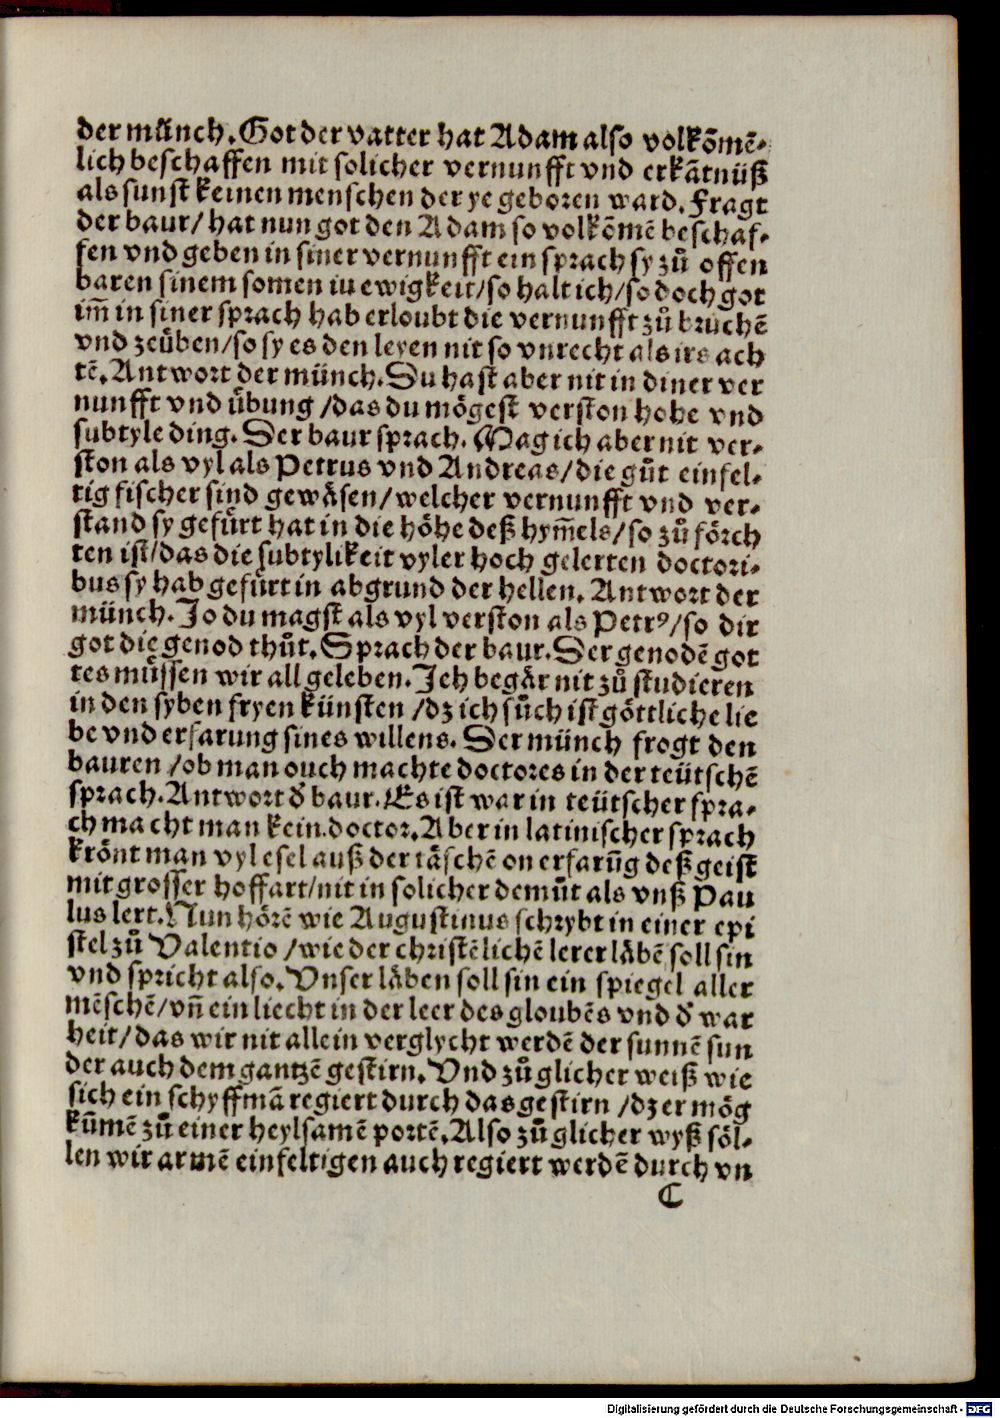 der münch. Got der vatter hat Adam also volkõmẽ-
lich beschaffen mit solicher vernunfft vnd erkãtnüß
als sunst keinen menschen der ye geboren ward. Fragt
der baur/ hat nun got den Adam so volkõmẽ beschaf-
fen vnd geben in siner vernunfft ein sprach sy zů offen
baren sinem somen in ewigkeit/so halt ich/so doch got
im̃ in siner sprach hab erloubt die vernunfft zů bruchẽ
vnd zeüben/so sy es den leyen nit so vnrecht als irs ach
tẽ. Antwort der münch. Du hast aber nit in diner ver
nunfft vnd ůbung /das du mögest verston hohe vnd
subtyle ding. Der baur sprach. Mag ich aber nit ver-
ston als vyl als Petrus vnd Andreas/die gůt einfel-
tig fischer sind gewäsen/welcher vernunfft vnd ver-
stand sy gefürt hat in die höhe deß hym̃els/so zů förch
ten ist/das die subtylikeit vyler hoch gelerten doctori-
bus sy hab gefürt in abgrund der hellen. Antwort der
münch. Jo du magst als vyl verston als Petrꝰ/so dir
got die genod thůt. Sprach der baur. Der genodẽ got
tes müssen wir all geleben. Jch begär nit zů studieren
in den syben fryen künsten /dz ich sůch ist göttliche lie
be vnd erfarung sines willens. Der münch frogt den
bauren /ob man ouch machte doctores in der teütschẽ
sprach. Antwort d̕ baur. Es ist war in teütscher spra-
ch macht man kein doctor. Aber in latinischer sprach
krönt man vyl esel auß der täschẽ on erfarũg deß geist
mit grosser hoffart/nit in solicher demůt als vnß Pau
lus lert. Nun hörẽ wie Augustinus schrybt in einer epi
stel zů Valentio /wie der christẽlichẽ lerer läbẽ soll sin
vnd spricht also. Vnser läben soll sin ein spiegel aller
mẽschẽ/vñ ein liecht in der leer des gloubẽs vnd d̕ war
heit/das wir nit allein verglycht werdẽ der sunnẽ sun
der auch dem gantzẽ gestirn. Vnd zů glicher weiß wie
sich ein schyffmã regiert durch das gestirn /dz er mög
kũmẽ zů einer heylsamẽ portẽ. Also zů glicher wyß söl-
len wir armẽ einfeltigen auch regiert werdẽ durch vn
C
Digitalisierung gefördert durch die Deutsche Forschungsgemeinschaft - DFG